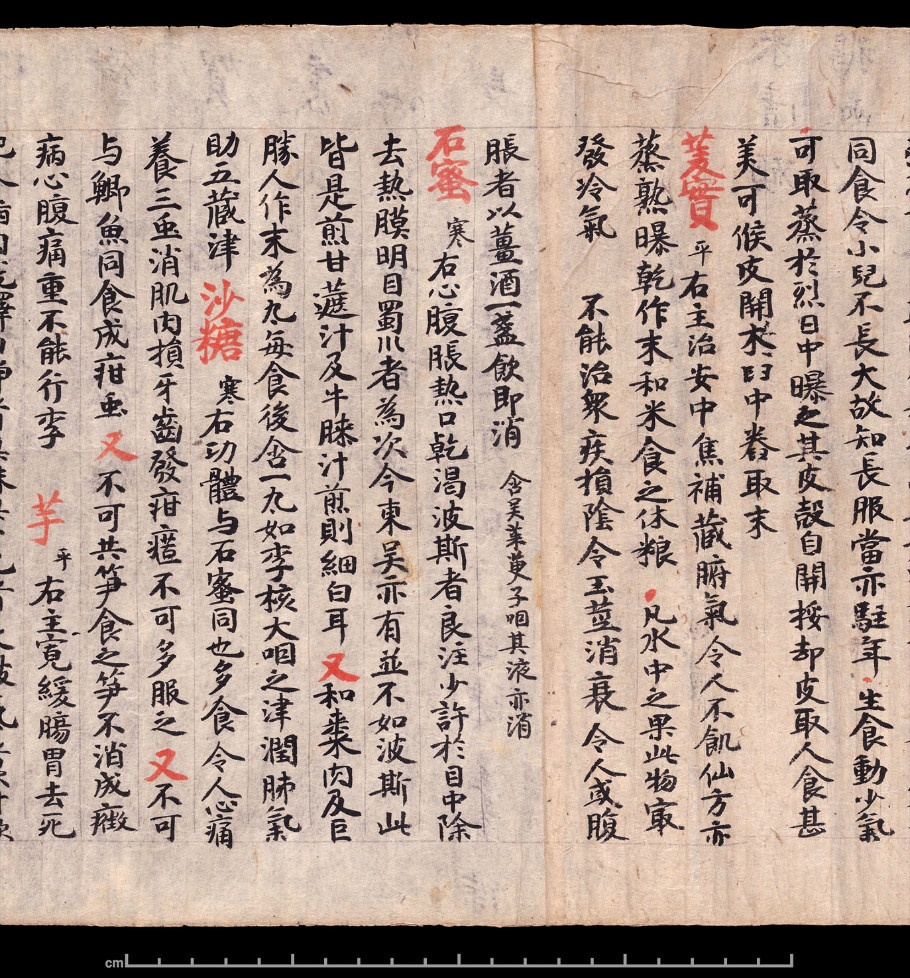 同食令小兒不長大故知長服當亦駐年生食動少氣
可取蒸於烈日中曝之其皮殼自開挼却皮取人食甚
美可候皮開末臼中舂取末
蓤實平右主治安中焦補藏腑氣令人不飢仙方亦
蒸熟曝乾作末和米食之休粮凡水中之果此物寂
發冷氣不能治衆疾損陰令玉莖消衰令人或腹
脹者以薑酒一盞飲即消含吴茱萸子咽其液亦消
石蜜寒右心腹脹熱口乾渴波斯者良注少許於目中除
去熱膜明目蜀川者為次今東吴亦有並不如波斯此
皆是煎甘蔗汁及牛膝汁煎則細白耳又和棗肉及巨
勝人作末為丸每食後含一丸如李核大咽之津潤肺氣
助五藏津沙糖寒右功體与石蜜同也多食令人心痛
養三虫消肌肉損牙齒發疳䘌不可多服之又不可
与鯽魚同食成疳虫又不可共笋食之笋不消成癥
病心腹痛重不能行李芋平右主寬緩腸胃去死